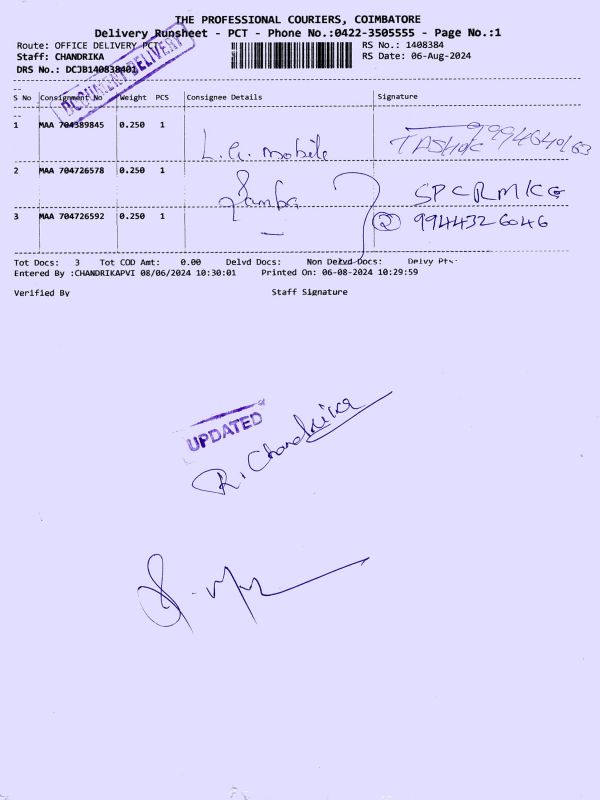 THE PROFESSIONAL COURIERS, COIMBATORE
Delivery Runsheet - PCT - Phone No.:0422-3505555 - Page No.:1
Route: OFFICE DELIVERY PCT RS No.: 1408384
Staff: CHANDRIKA RS Date: 06-Aug-2024
DRS No.: DCJB140838401
DOCUMENT DELIVERY
S No Consignment No Weight PCS Consignee Details Signature
1 MAA 704389845 0.250 1
L.G. mobile
2 MAA 704726578 0.250 1
SPCRMKG
3 MAA 704726592 0.250 1
② 9944326046
Tot Docs: 3 Tot COD Amt: 0.00 Delvd Docs: Non Delvd Docs:
Entered By :CHANDRIKAPVI 08/06/2024 10:30:01 Printed On: 06-08-2024 10:29:59
Verified By Staff Signature
UPDATED
R. Chandrika